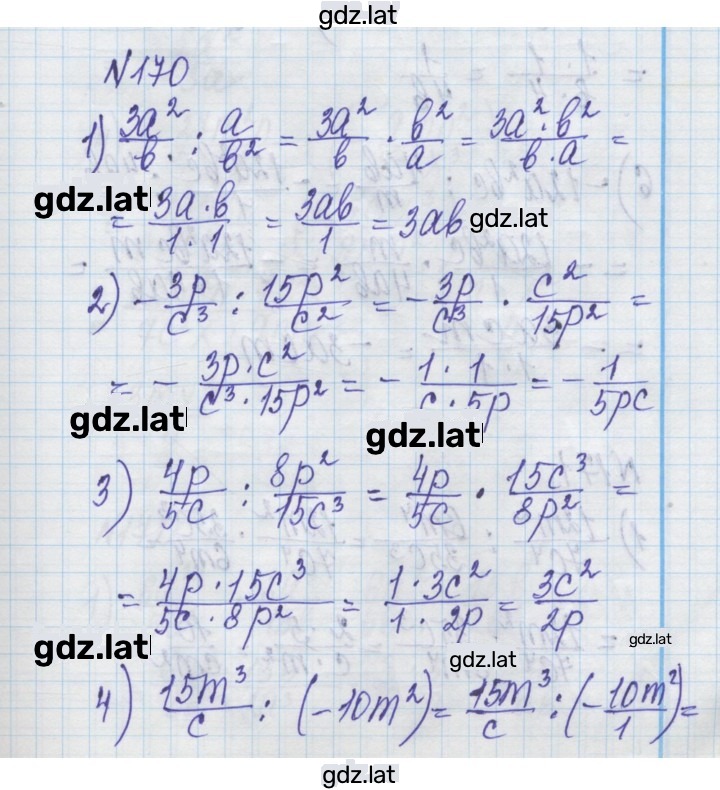 gdz.lat
№170
1) 3a²/b : a/b² = 3a²/b · b²/a = 3a²·b²/b·a =
gdz.lat
= 3a·b/1·1 = 3ab/1 = 3ab
gdz.lat
2) - 3p/c³ : 15p²/c² = - 3p/c³ · c²/15p² =
= - 3p·c²/c³·15p² = - 1·1/c·5p = - 1/5pc
gdz.lat
gdz.lat
3) 4p/5c : 8p²/15c³ = 4p/5c · 15c³/8p² =
= 4p·15c³/5c·8p² = 1·3c²/1·2p = 3c²/2p
gdz.lat
gdz.lat
gdz.lat
4) 15m³/c : (-10m²) = 15m³/c : (- 10m²/1) =
gdz.lat